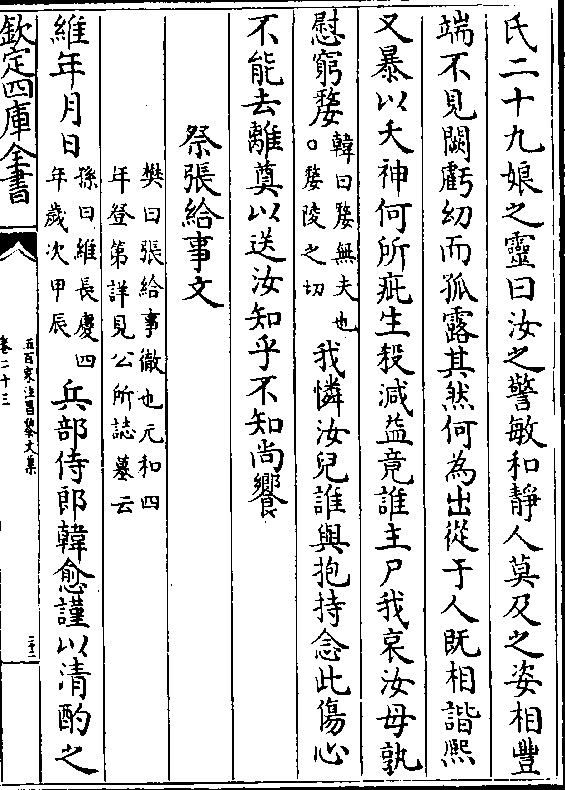 氏二十九娘之靈曰汝之警敏和靜人莫及之姿相豐
端不見闕虧幼而孤露其然何為出從于人既相諧熙
又暴以夭神何所疵生殺減益竟誰主尸我哀汝母孰
慰窮嫠韓曰嫠無夫也○嫠陵之切我憐汝兒誰與抱持念此傷心
不能去離奠以送汝知乎不知尚饗
祭張給事文
樊曰張給事徹也元和四
年登第詳見公所誌墓云
維年月日孫曰維長慶四年歲次甲辰兵部侍郎韓愈謹以清酌之
欽定四庫全書
五百家注昌黎文集
卷二十三
二十二